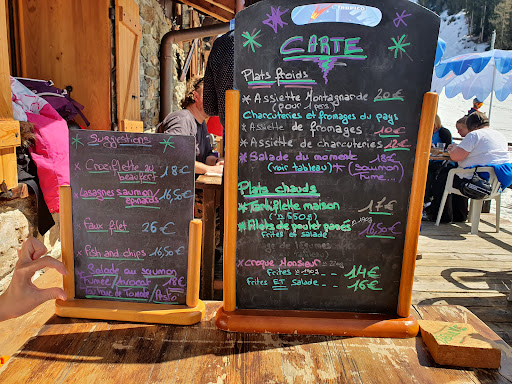 * Suggestions *
* Croziflette au beaufort 18€
* Lasagnes saumon/ épinards 16,50€
* Faux filet 26€
* Fish and chips 16,50€
* Salade au saumon fumée / avocat 18€
Tartare de Tomate / Pesto
CARTE
Plats froids
* Assiette Montagnarde 20€
(pour 1 pers)
Charcuteries et fromages du pays
* Assiette de fromages 10€
* Assiette de charcuteries 12€
* Salade du moment 18€
(voir tableau) * (saumon fumé)
Plats chauds
* Tartiflette maison 17€
* Filets de poulet panés 16,50€
Frites et salade
* Croque Monsieur
Frites 14€
Frites ET salade 16€